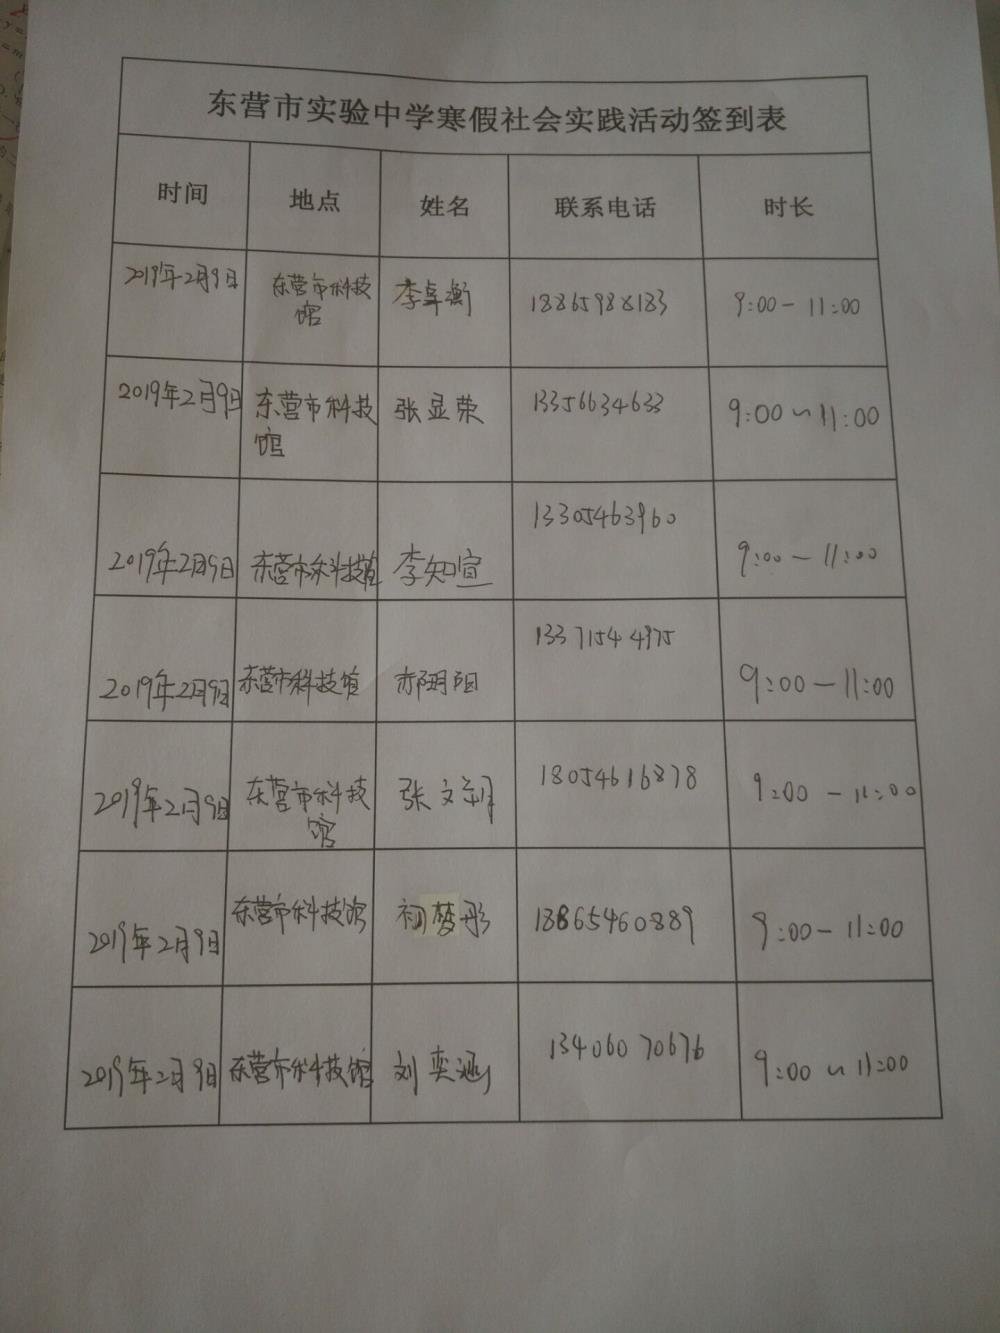 东营市实验中学寒假社会实践活动签到表
时间 地点 姓名 联系电话 时长
2019年2月9日 东营市科技馆 李卓衡 18865988183 9:00－11:00
2019年2月9日 东营市科技馆 张显荣 13356634633 9:00～11:00
2019年2月9日 东营市科技馆 李知宣 13305463960 9:00－11:00
2019年2月9日 东营市科技馆 阳 13371544975 9:00－11:00
2019年2月9日 东营市科技馆 张文 18054616878 9:00－11:00
2019年2月9日 东营市科技馆 初梦彤 18865460889 9:00－11:00
2019年2月9日 东营市科技馆 刘奕涵 13406070676 9:00～11:00